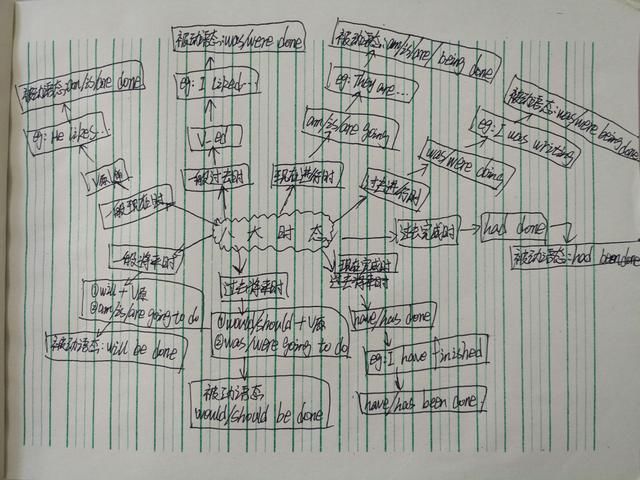 被动语态:was/were done
eg: I liked...
V-ed
一般过去时
被动语态:am/is/are being done
eg: They are...
am/is/are going
现在进行时
被动语态:was/were being done
eg: I was writing
was/were doing
过去进行时
被动语态:am/is/are done
eg: He likes...
V原
一般现在时
八大时态
过去完成时
had done
被动语态:had been done
一般将来时
①will+V原
②am/is/are going to do
被动语态:will be done
过去将来时
①would/should+V原
②was/were going to do
被动语态
would/should be done
现在完成时
have/has done
eg: I have finished
have/has been done